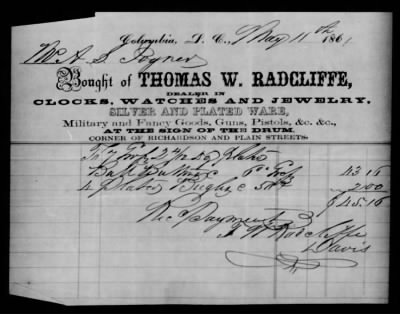 Columbia, S. C., May 11th 1861
Mr A. S.
Bought of THOMAS W. RADCLIFFE,
DEALER IN
CLOCKS, WATCHES AND JEWELRY,
SILVER AND PLATED WARE,
Military and Fancy Goods, Guns, Pistols, &c. &c.,
AT THE SIGN OF THE DRUM,
CORNER OF RICHARDSON AND PLAIN STREETS.
To 7 2
Ball Buttons 43 16
4 Plates Bugles 50 2.00
$45.16
Rec Payment
T W Radcliffe
Davis